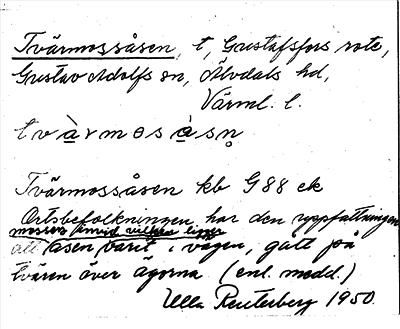 Tvärmossåsen, t, Gustafsfors rote,
Gustav Adolfs sn, Älvdals hd,
Värml. l.
tvàrmosàsn̥
Tvärmossåsen kb G88 ek
Ortsbefolkningen har den uppfattningen
mossen invid vilken ligger
att åsen varit i vägen, gått på
tvären över ägorna (enl. medd.)
Ulla Reuterberg 1950.